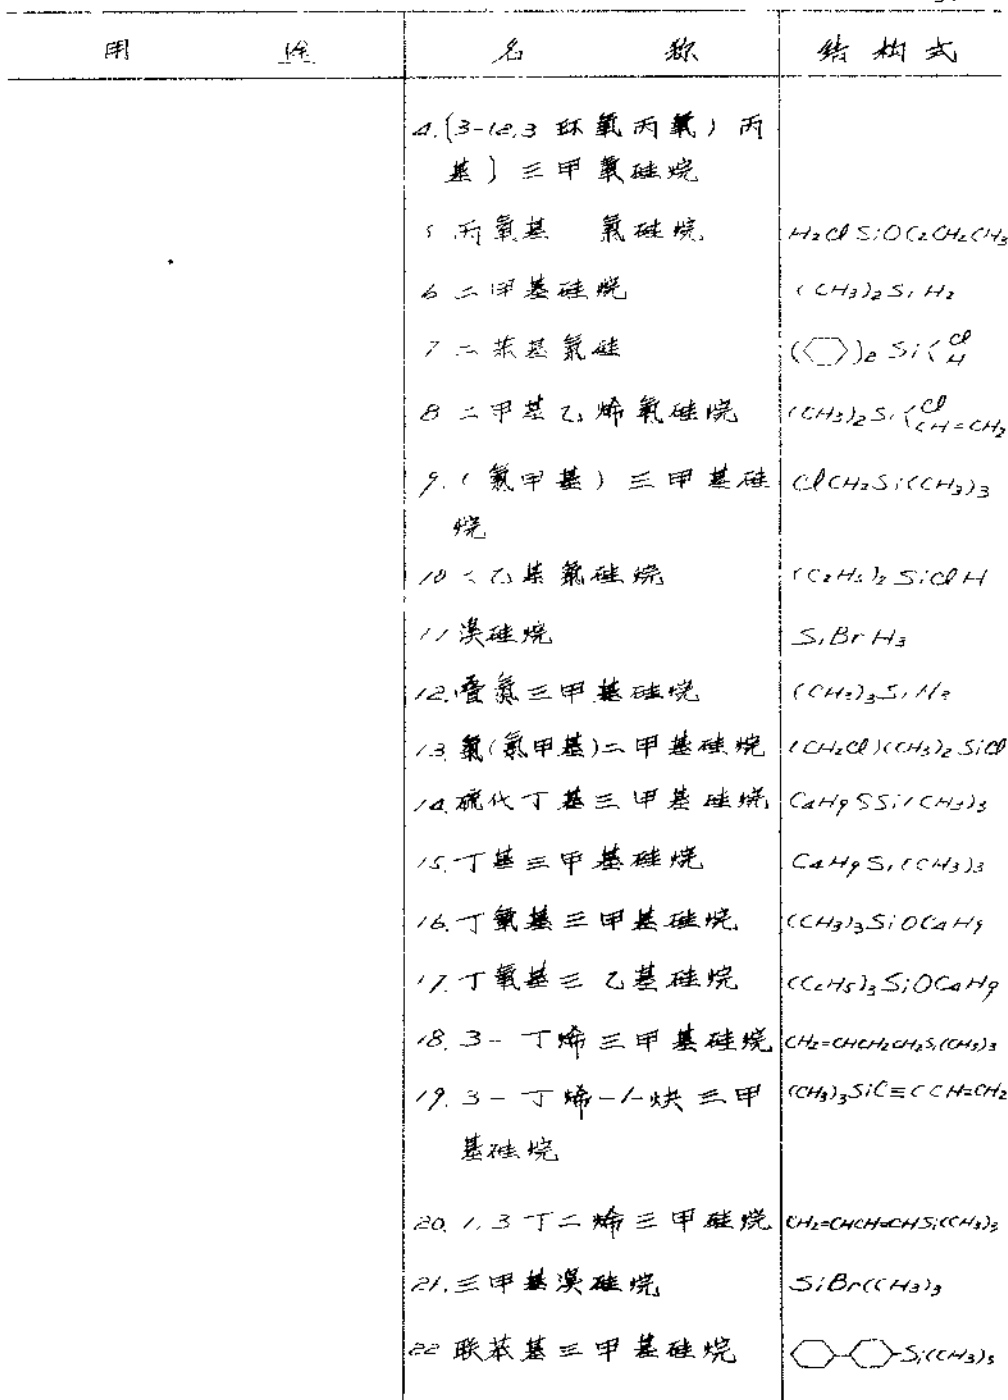 用 途 名 称 结构式
4.[3-(2,3 环氧丙氧)丙
基]三甲氧硅烷
5 丙氧基 氯硅烷 H2ClSiOC2CH2CH3
6 二甲基硅烷 (CH3)2SiH2
7 二苯基氯硅 ( )2 Si Cl H
8 二甲基乙烯氯硅烷 (CH3)2Si Cl CH=CH2
9.(氯甲基)三甲基硅 ClCH2Si(CH3)3
烷
10 乙基氯硅烷 (C2H5)2SiClH
11 溴硅烷 SiBrH3
12.叠氮三甲基硅烷 (CH3)3SiN3
13.氯(氯甲基)二甲基硅烷 (CH2Cl)(CH3)2SiCl
14.硫代丁基三甲基硅烷 C4H9SSi(CH3)3
15.丁基三甲基硅烷 C4H9Si(CH3)3
16.丁氧基三甲基硅烷 (CH3)3SiOC4H9
17.丁氧基三乙基硅烷 (C2H5)3SiOC4H9
18.3-丁烯三甲基硅烷 CH2=CHCH2CH2Si(CH3)3
19.3-丁烯-1-炔三甲 (CH3)3SiC≡CCH=CH2
基硅烷
20.1,3丁二烯三甲硅烷 CH2=CHCH=CHSi(CH3)3
21.三甲基溴硅烷 SiBr(CH3)3
22 联苯基三甲基硅烷 Si(CH3)3